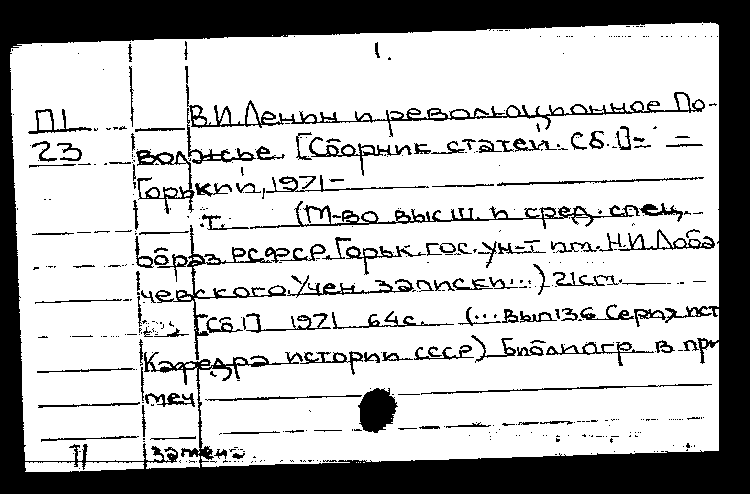 1.
П1 В.И.Ленин и революционное По-
23 волжье. [Сборник статей. Сб.1]- =
Горький, 1971-
т. (М-во высш. и сред. спец.
образ. РСФСР. Горьк. гос. ун-т им. Н.И. Лоба-
чевского. Учен. записки...) 21см.
[Сб.1] 1971 64с. (...вып.136 Серия ист
Кафедра истории СССР) Библиогр. в при
меч.
замена